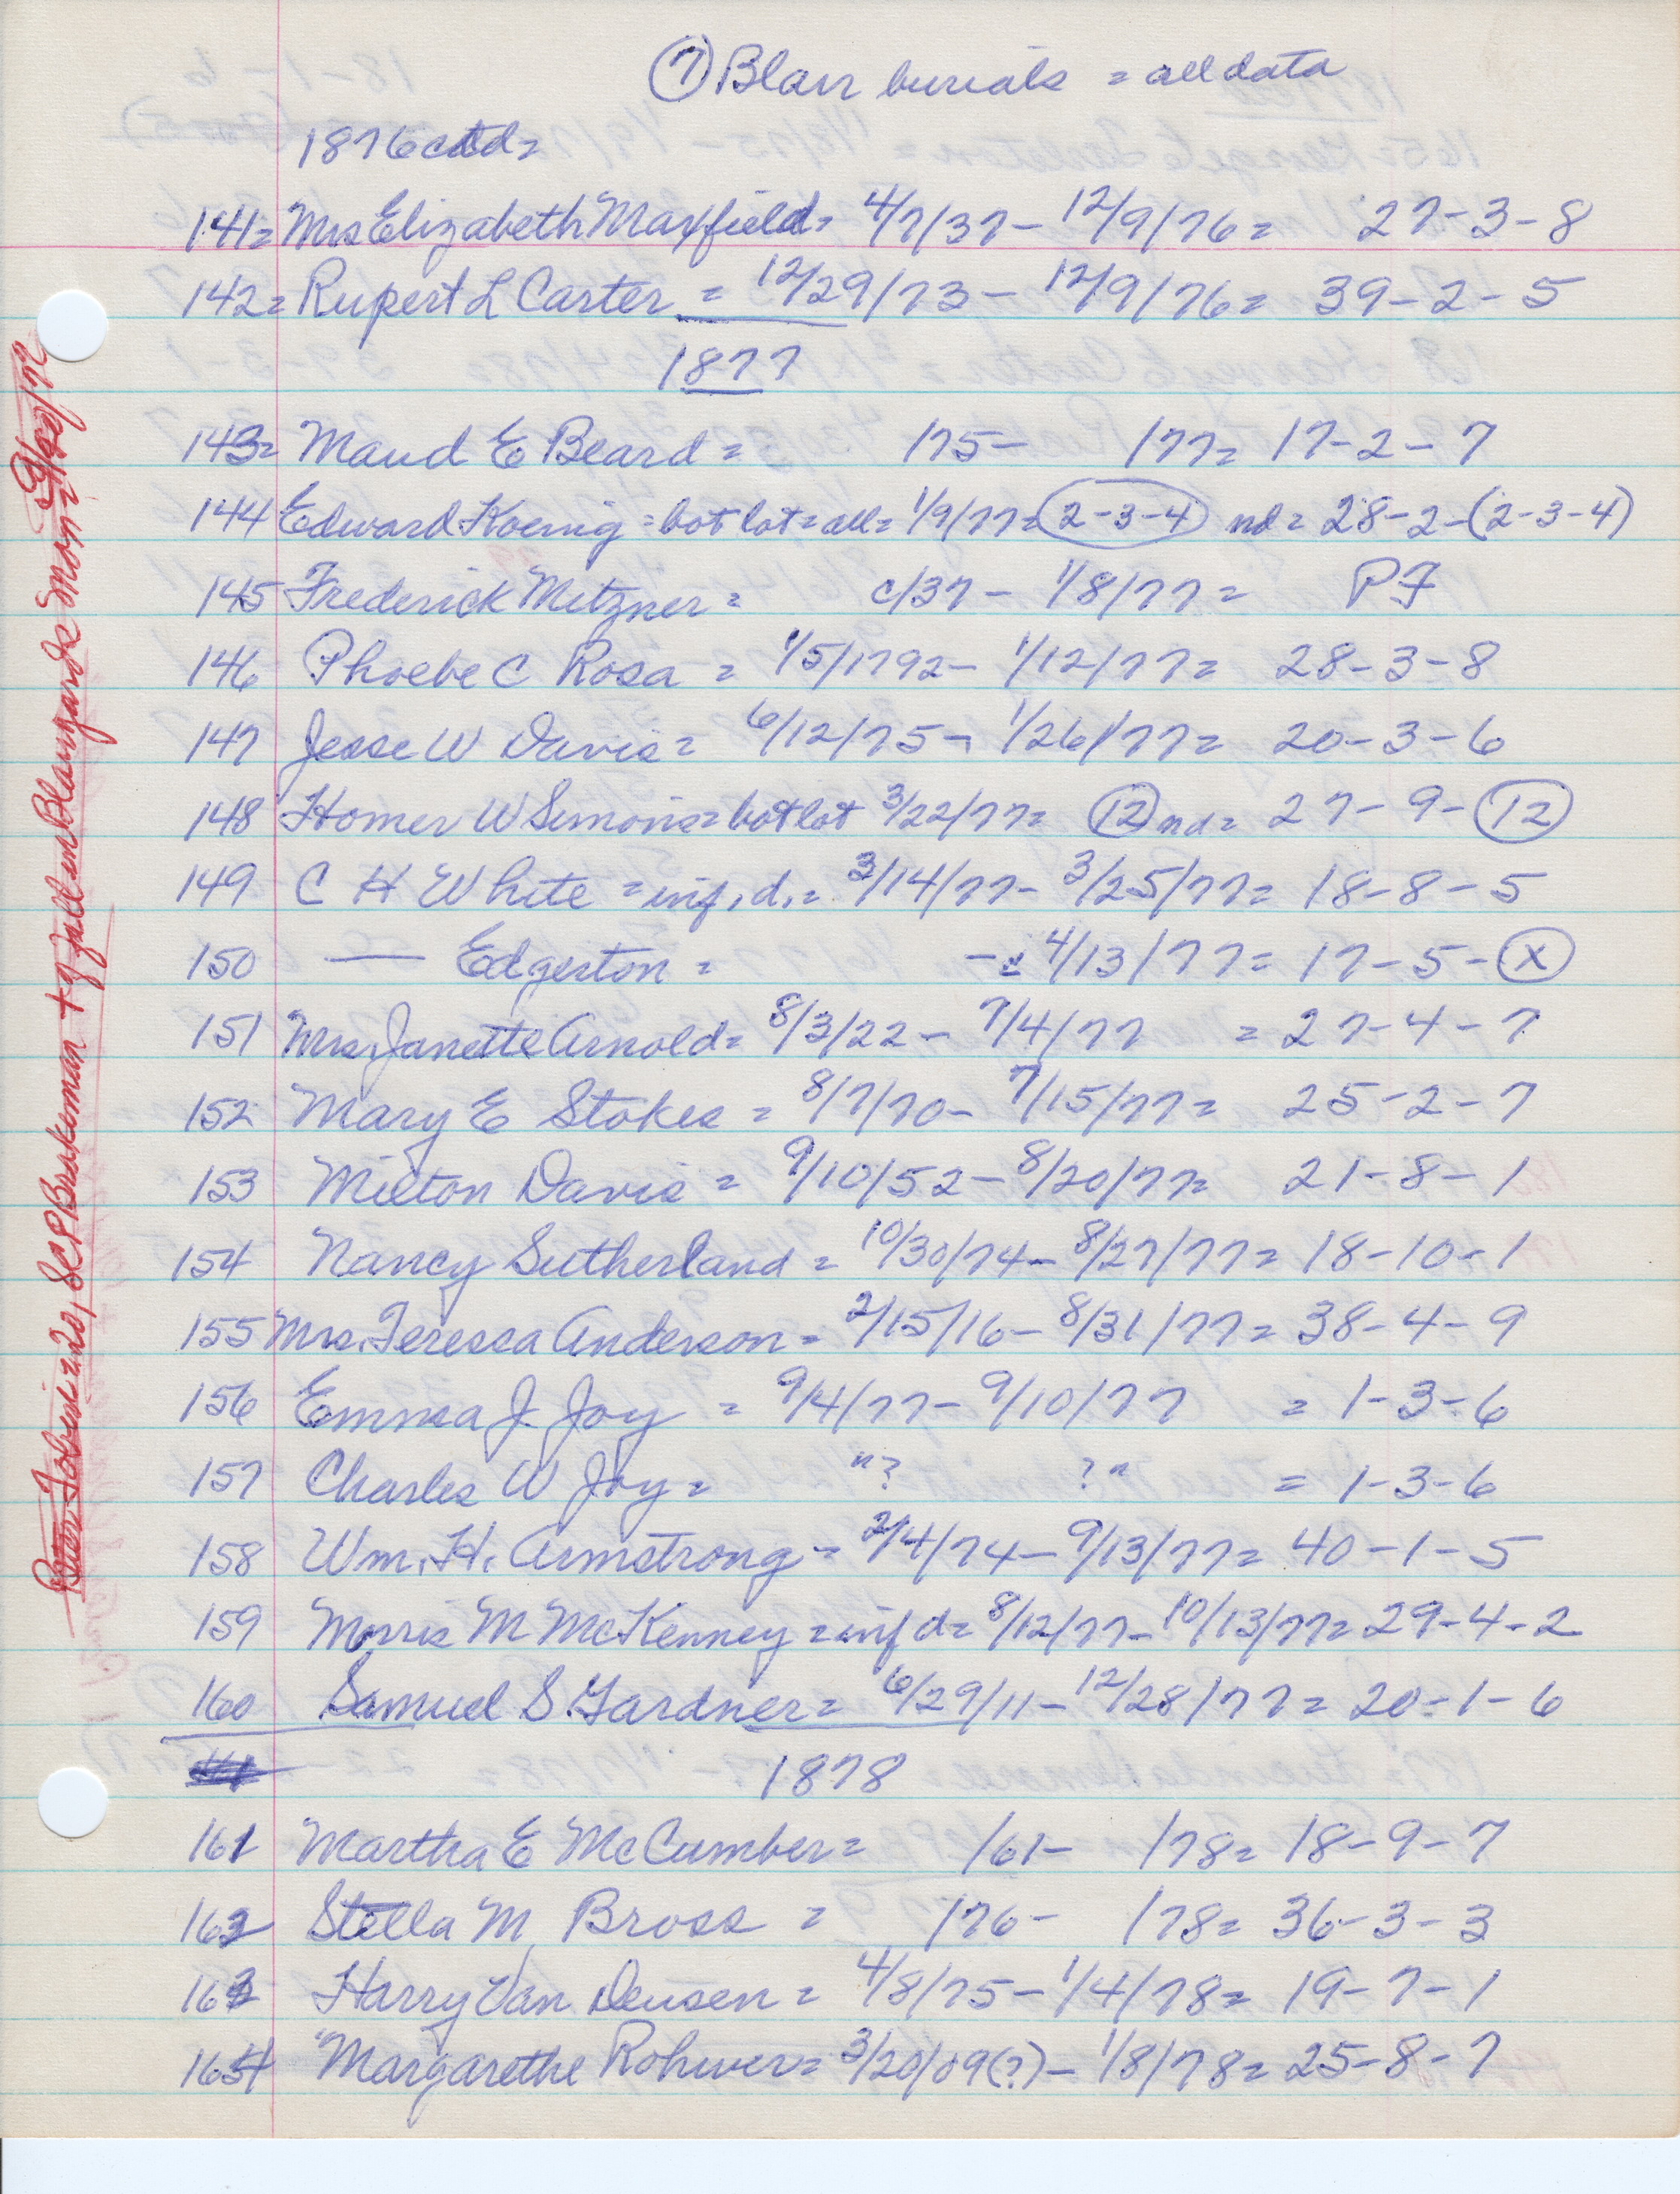 ⑦ Blair burials = all data
1876 ctd =
141 = Mrs Elizabeth Maxfield = 4/7/37 - 12/9/76 = 27-3-8
142 = Rupert L Carter = 12/29/73 - 12/9/76 = 39-2-5
1877
143 = Maud E Beard = /75 - /77 = 17-2-7
144 Edward Koenig = bot lot = all = 1/9/77 = (2-3-4) nd = 28-2-(2-3-4)
145 Frederick Metzner = c/37 - 1/8/77 = PF
146 Phoebe C Rosa = 1/5/1792 - 1/12/77 = 28-3-8
147 Jesse W Davis = 6/12/75 - 1/26/77 = 20-3-6
148 Homer W Simons = bot lot 3/22/77 = (12) nd = 27-9-(12)
149 C H White = inf. d. = 3/14/77 - 3/25/77 = 18-8-5
150 — Edgerton = - 4/13/77 = 17-5-(x)
151 Mrs. Janette Arnold = 8/3/22 - 7/4/77 = 27-4-7
152 Mary E Stokes = 8/7/70 - 7/15/77 = 25-2-7
153 Milton Davis = 9/10/52 - 8/20/77 = 21-8-1
154 Nancy Sutherland = 10/30/74 - 8/27/77 = 18-10-1
155 Mrs. Teressa Anderson = 2/15/16 - 8/31/77 = 38-4-9
156 Emma J. Joy = 9/4/77 - 9/10/77 = 1-3-6
157 Charles W Joy = "? ?" = 1-3-6
158 Wm. H. Armstrong - 2/4/74 - 9/13/77 = 40-1-5
159 Morris M McKenney = inf d = 8/12/77 - 10/13/77 = 29-4-2
160 Samuel S. Gardner = 6/29/11 - 12/28/77 = 20-1-6
1878
161 Martha E McCumber = /61 - /78 = 18-9-7
162 Stella M Bross = /76 - /78 = 36-3-3
163 Harry Van Deusen = 4/8/75 - 1/4/78 = 19-7-1
164 Margarethe Rohwer = 3/20/09(?) - 1/8/78 = 25-8-7
SCP Brakeman + g fall in Blair yards